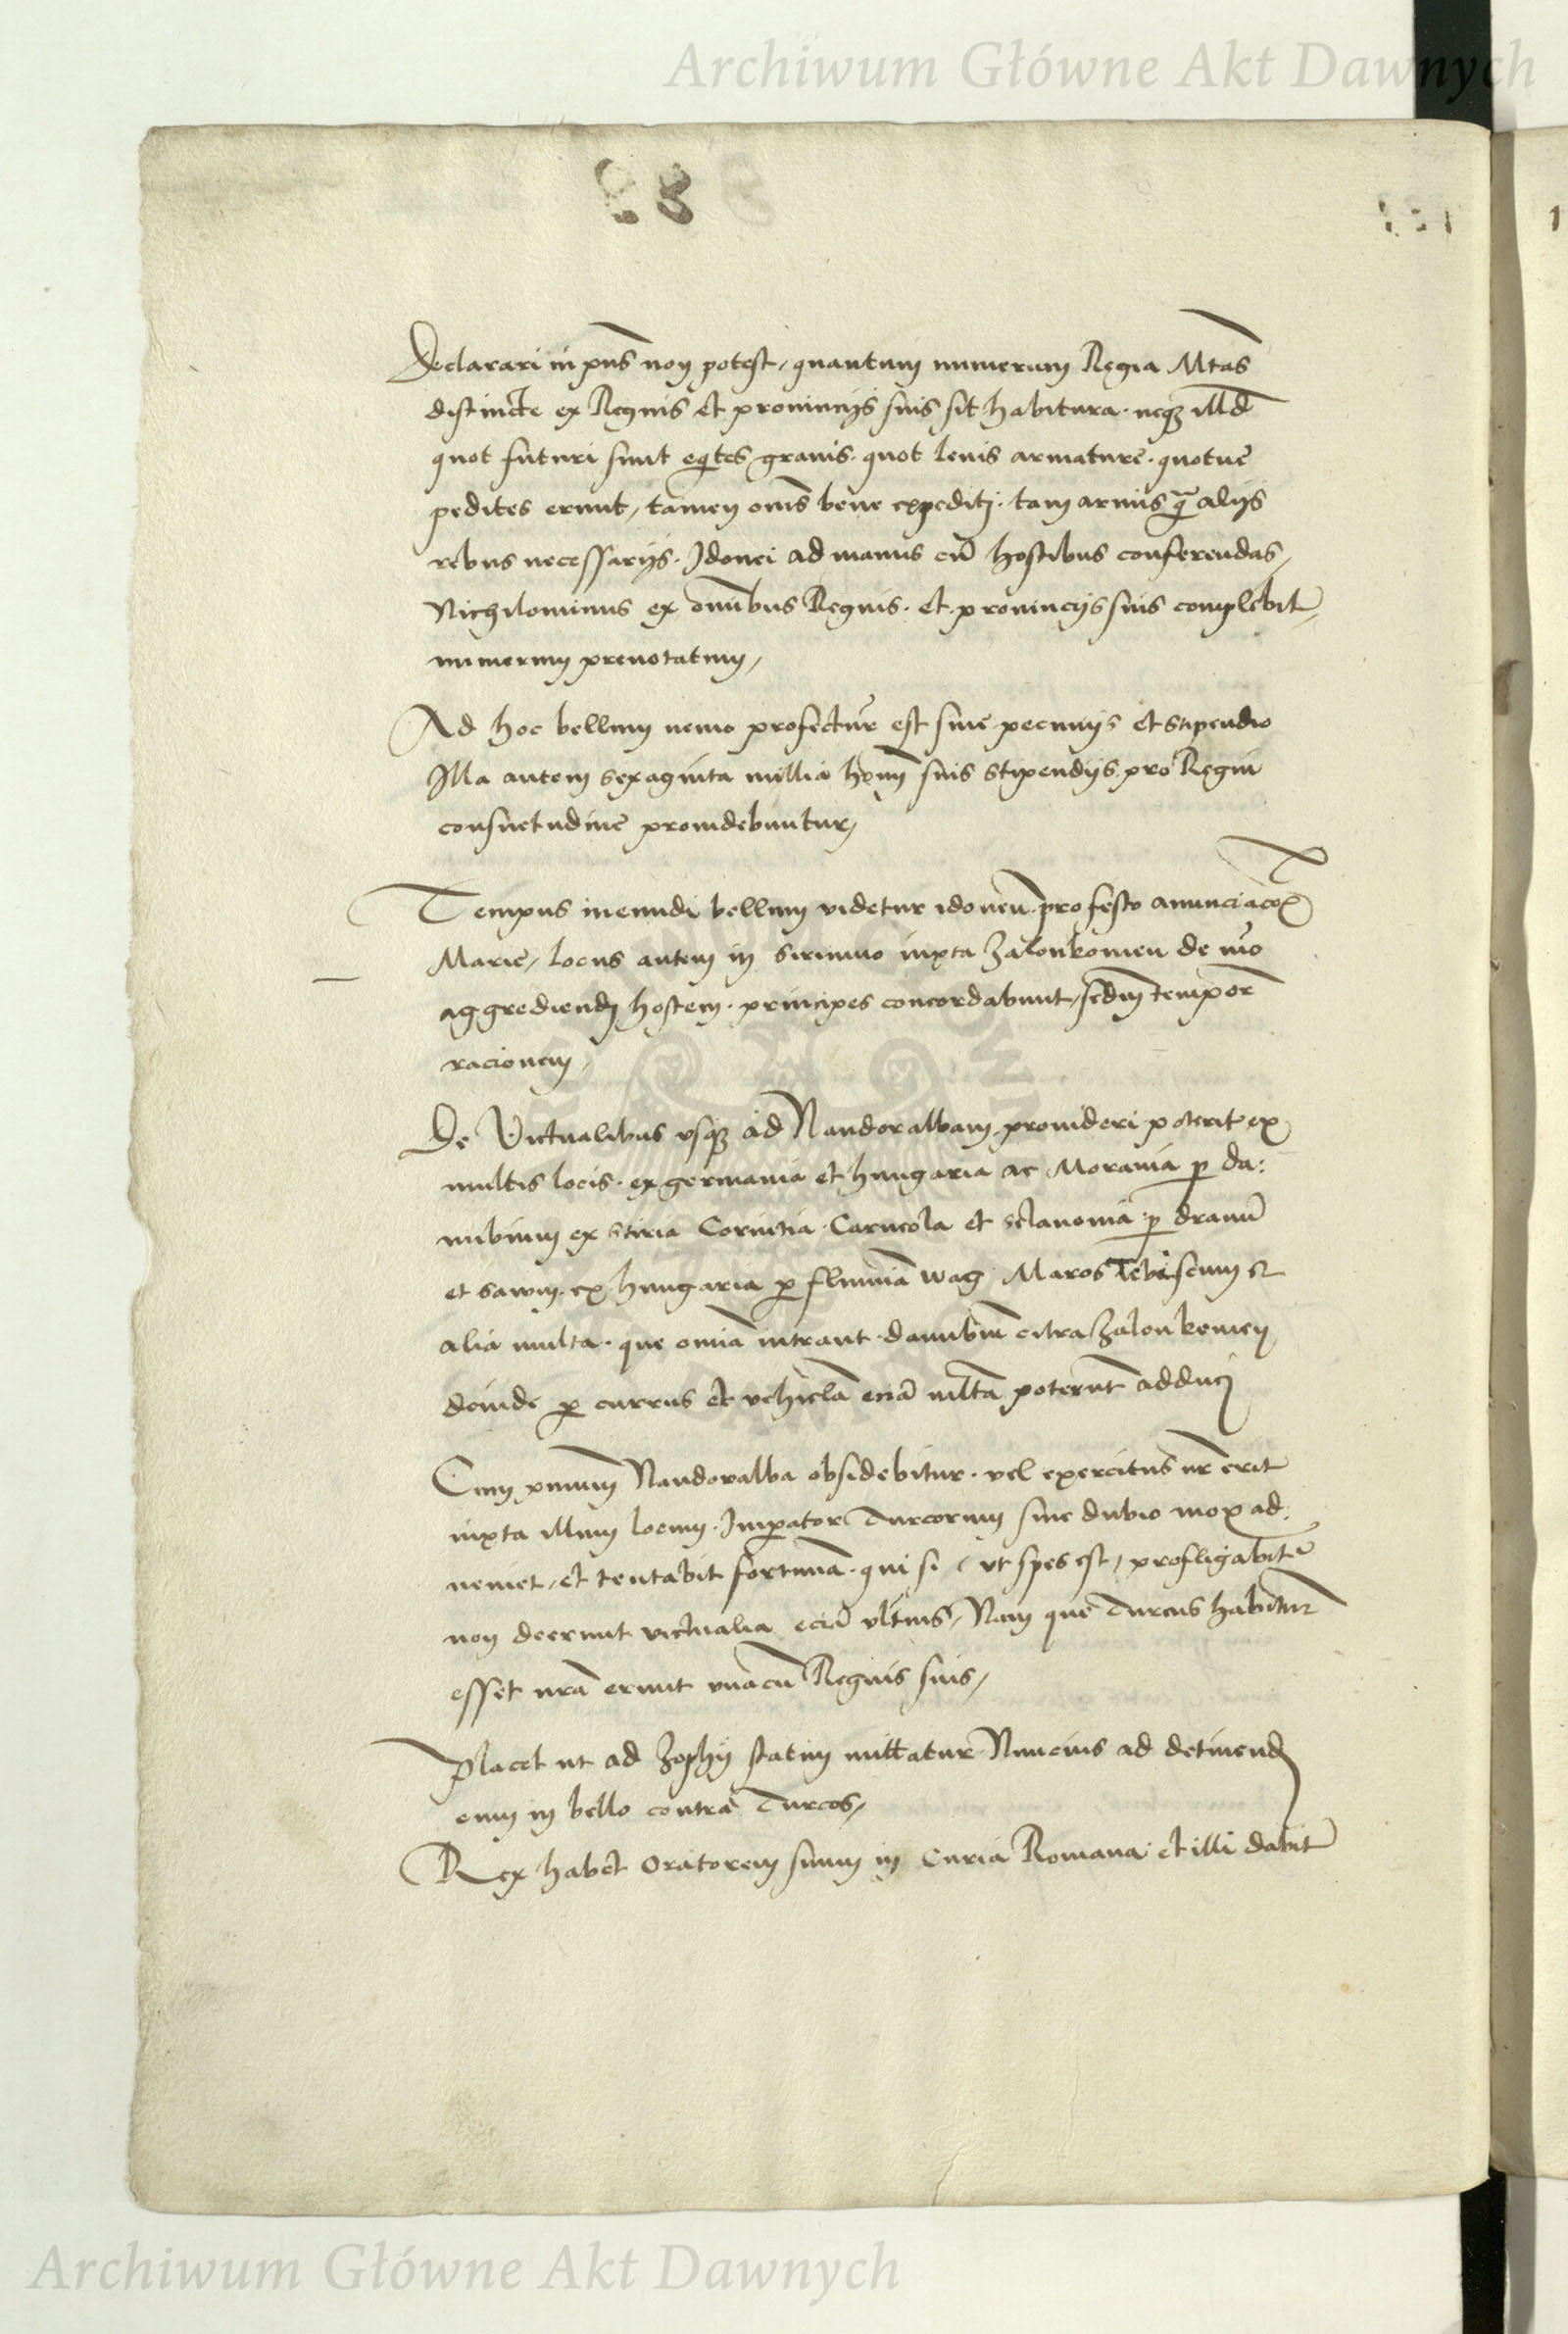 Archiwum Główne Akt Dawnych
Declarari in pns̄ non potest, quantum numerum Regia Mtas̄
distincte ex Regnis et prouincijs suis sit habitura. neqꝫ illđ
quot futuri sunt eqtes grauis. quot leuis armature. quotue
pedites erunt, tamen oms̄ bene expediti. tam armis q̄ȝ alijs
rebus necessarijs. Idonei ad manus cū hostibus conferendas,
Nichilominus ex om̄ibus Regnis. et prouincijs suis complebit,
numerum prenotatum,
Ad hoc bellum nemo profectur̄ est sine pecunijs et stipendio
Illa autem sexaginta millia hom̄ suis stipendijs pro Regni
consuetudine prouidebuntur,
Tempus ineundi bellum videtur idoneū. pro festo anunciacōis
Marie, locus autem in Sirimio iuxta Zalonkemen de mō
aggrediendi hostem. principes concordabunt, scdm̄ tempor̄
racionem,
De Victualibus vsqꝫ ad Nandoralbam prouideri poterit ex
multis locis. ex germania et hungaria ac Morauia ꝑ da:
nubium ex stiria Corintia. Carneola et sclauonia ꝑ drauū
et sawm. ex hungaria ꝑ flumīa wag Maros Tebiscum et
alia multa. que om̄ia intrant danubiū citra Zalonkemen
deinde ꝑ currus et vehicla eciā mlta poterūt adduci
Cum primum Nandoralba obsidebitur. vel exercitus nr̄ erit
iuxta illum locum. Imperator Turcorum sine dubio mox ad:
ueniet, et tentabit fortunā. qui si, vt spes est, profligabitr̄
non deerunt victualia eciā vltius, Nam que Turcus habitur̄
esset nrā erunt vnacū Regnis suis,
Placet ut ad Zophy statim mittatur Nuncius ad detinendū
eum in bello contra Turcos,
Rex habet Oratorem suum in Curia Romana et illi dabitr̄
Archiwum Główne Akt Dawnych